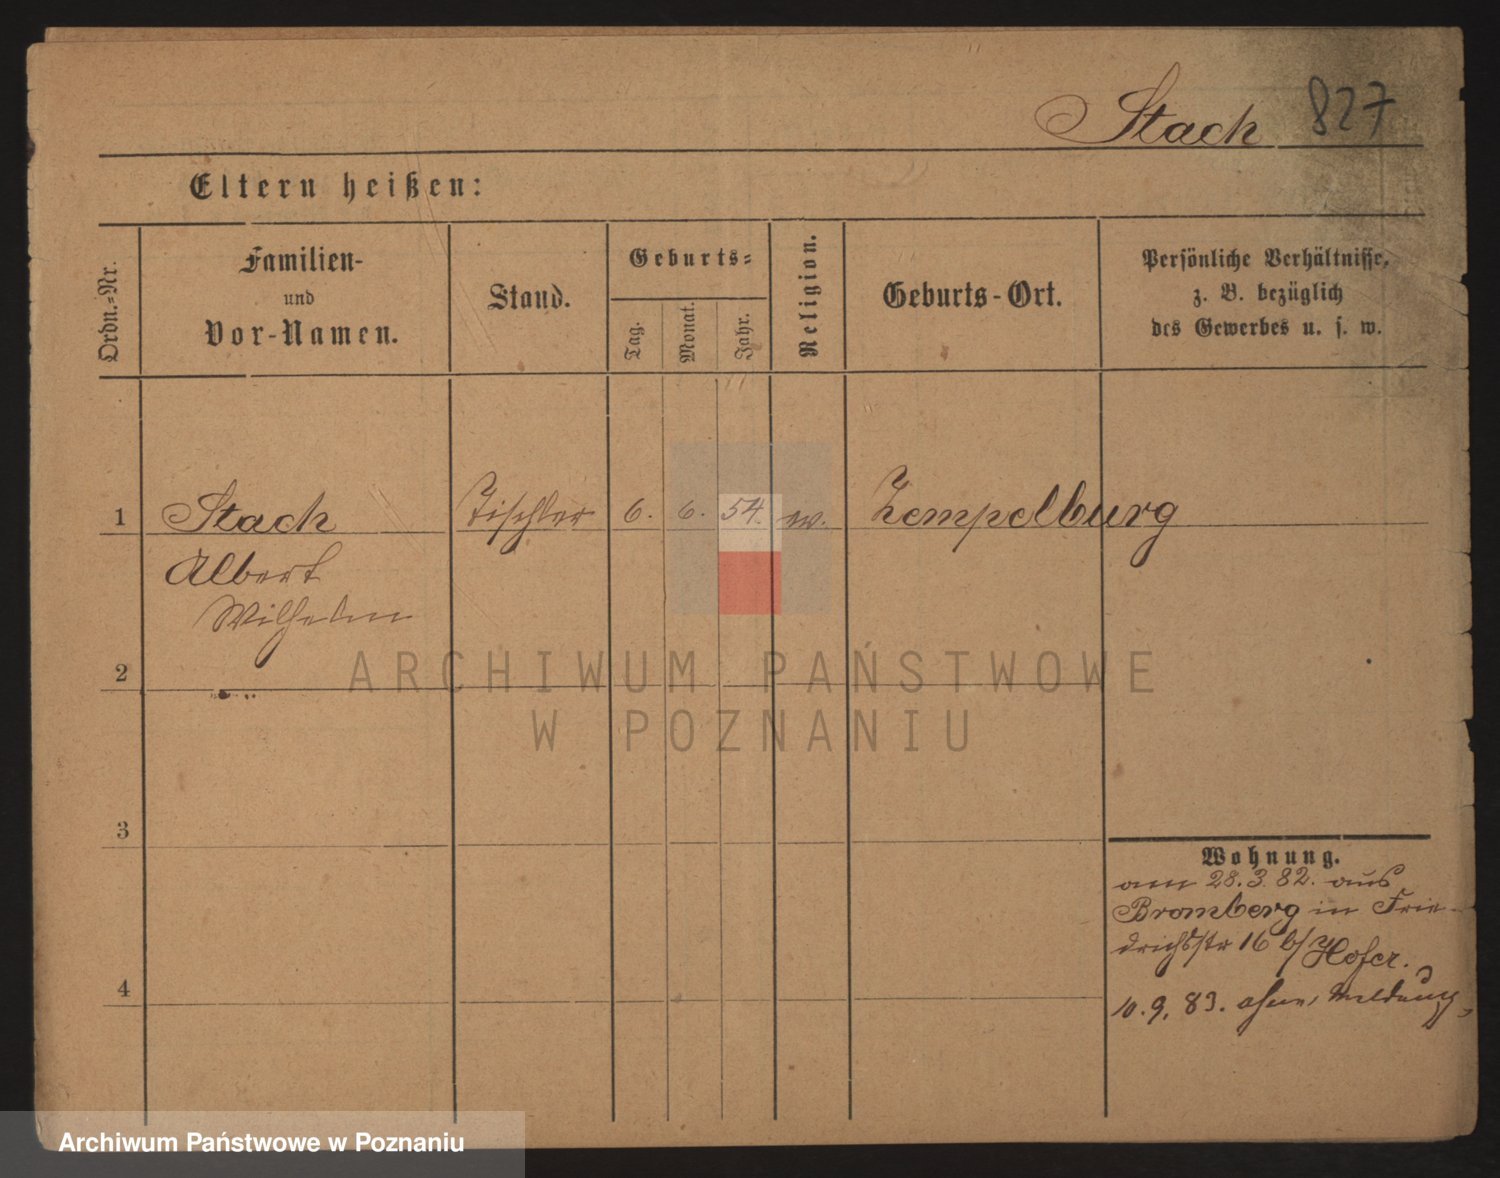 Stach 827
Eltern heißen:
Ordn.-Nr.
Familien-
und
Vor-Namen.
Stand.
Geburts-
Tag.
Monat.
Jahr.
Religion.
Geburts-Ort.
Persönliche Verhältnisse,
z. B. bezüglich
des Gewerbes u. s. w.
1 Stach Tischler 6. 6. 54. ev. Zempelburg
Albert
Wilhelm
2
3
4
Wohnung.
am 28.3.82. aus
Bromberg in Frie-
drichstr 16 b/ Hofer.
10.9.83. ohne Meldung
ARCHIWUM PAŃSTWOWE
W POZNANIU
Archiwum Państwowe w Poznaniu